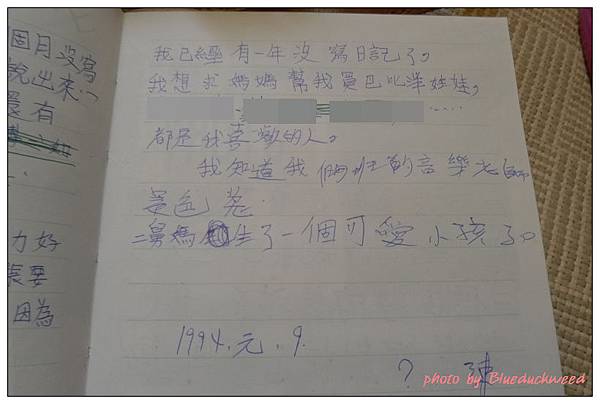 個月沒寫
說出來…
還有
力好
張要
因為
我已經有一年沒寫日記了。
我想求媽媽幫我買巴比洋娃娃,
……
都是我喜歡的人。
我知道我們班的音樂老師
是色鬼.
二舅媽生了一個可愛小孩了。
1994.元.9.
? 陳
photo by Blueduckweed